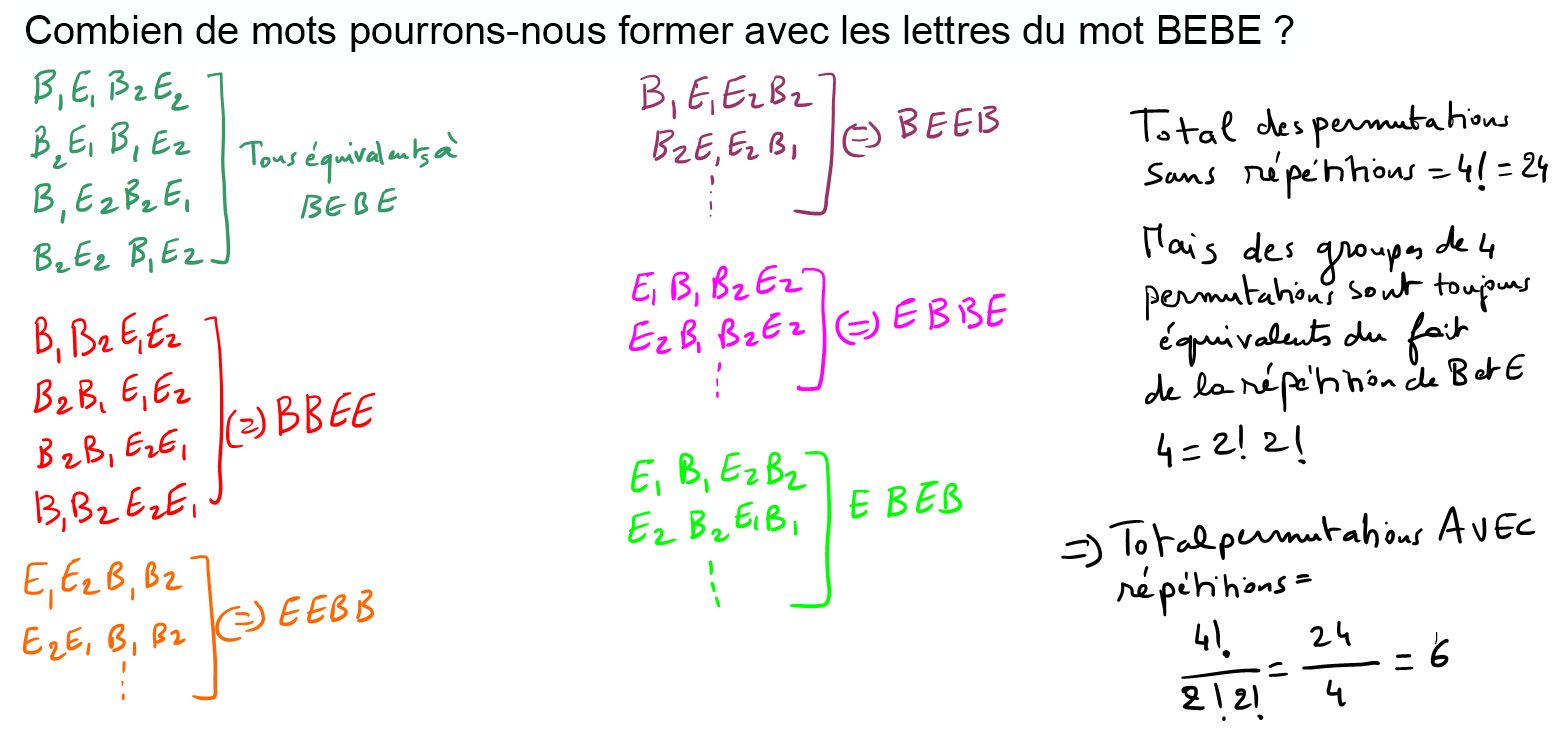 Combien de mots pourrons-nous former avec les lettres du mot BEBE ?
B₁E₁B₂E₂
B₂E₁B₁E₂
B₁E₂B₂E₁
B₂E₂B₁E₂
Tous équivalents à
BEBE
B₁B₂E₁E₂
B₂B₁E₁E₂
B₂B₁E₂E₁
B₁B₂E₂E₁
(=) BBEE
E₁E₂B₁B₂
E₂E₁B₁B₂
(=) EEBB
B₁E₁E₂B₂
B₂E₁E₂B₁
(=) BEEB
E₁B₁B₂E₂
E₂B₁B₂E₂
(=) EBBE
E₁B₁E₂B₂
E₂B₂E₁B₁
EBEB
Total des permutations
sans répétitions = 4! = 24
Mais des groupes de 4
permutations sont toujours
équivalents du fait
de la répétition de B et E
4 = 2! 2!
=) Total permutations AVEC
répétitions =
4! / 2! 2! = 24 / 4 = 6